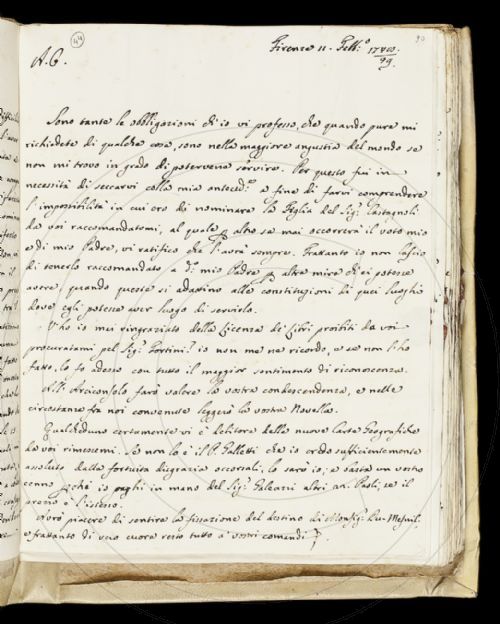 44
90
A. C.
Firenze 11. Febb.º 1798/99.
Sono tante le obbligazioni ch'io vi professo, che quando pure mi
richiedete di qualche cosa, sono nella maggiore angustia del mondo se
non mi trovo in grado di potervene servire. Per questo fui in
necessità di seccarvi colla mia anteced.e a fine di farvi comprendere
l'impossibilità in cui ero di nominare la Figlia del Sig.r Castagnoli
da voi raccomandatomi, al quale p altro se mai occorrerà il voto mio
e di mio Padre, vi ratifico che l'avrà sempre. Frattanto io non lascio
di tenerlo raccomandato a d.º mio Padre p altre mire ch'ei potesse
avere, quando queste si adattino alle constituzioni di quei luoghi
dove egli potesse aver luogo di servirlo.
V'ho io mai ringraziato della Licenza de Libri proibiti da voi
procuratami pel Sig.r Fortini? io non me ne ricordo, e se non l'ho
fatto, lo fo adesso con tutto il maggior sentimento di riconoscenza.
All' Arciconsolo farò valere la vostra condescendenza, e nelle
circostanze fra noi convenute leggerò la vostra Novella.
Qualcheduno certamente vi è debitore delle nuove Carte Geografiche
da voi rimessemi. Se non lo è il P. Galletti che io credo sufficientemente
assoluto dalla fortuita disgrazia occorsali, lo sarò io, e basta un vostro
cenno p chè io paghi in mano del Sig.r Galeazzi altri Paoli, se il
prezzo è l'istesso.
Avrò piacere di sentire la fissazione del destino di Monsig.r
e frattanto di vero cuore resto tutto a' vostri comandi